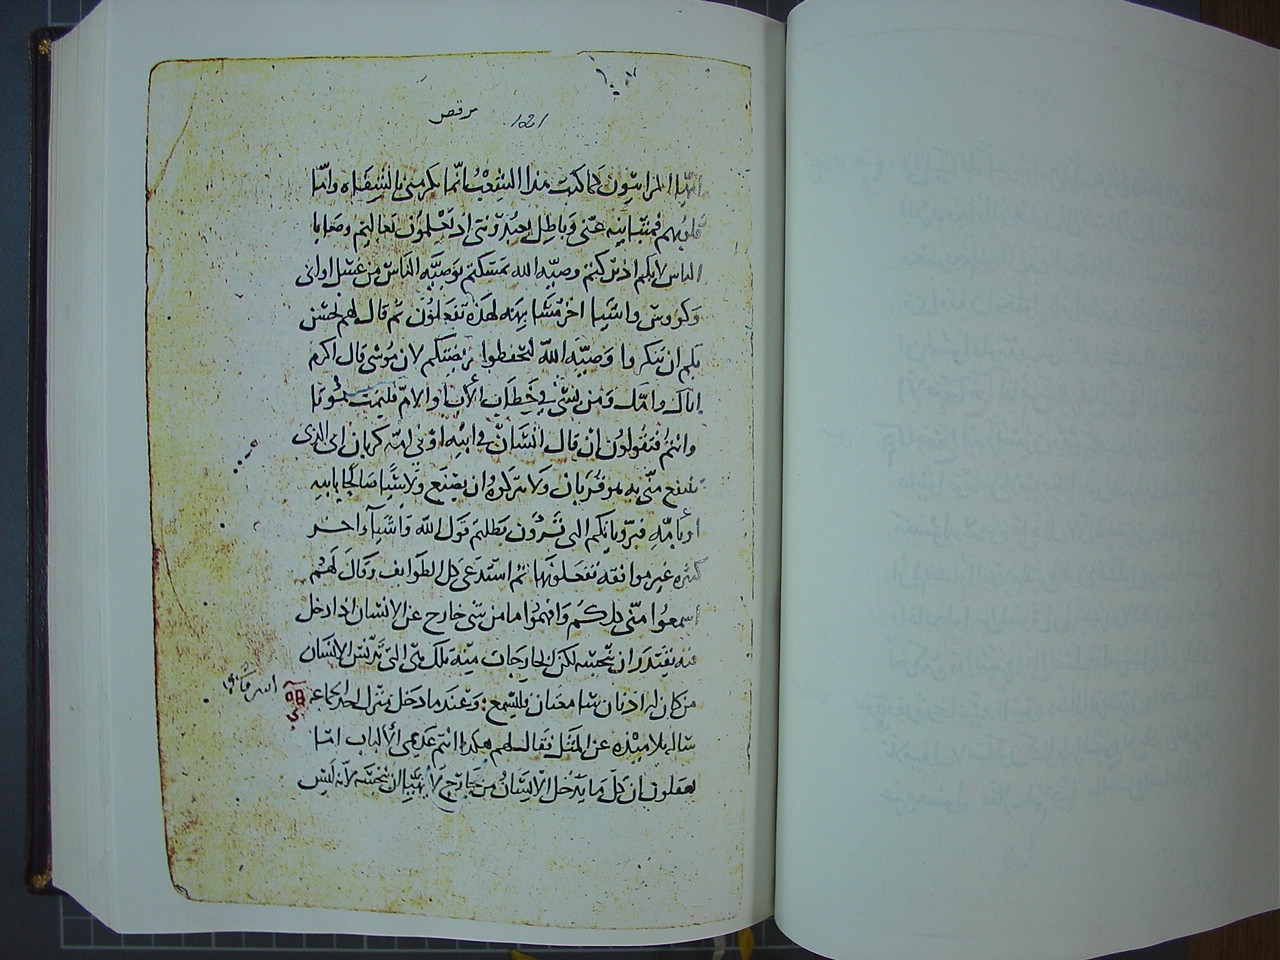 مرقص 121
ايها المرايون كما كتب هذا الشعب انما يكرمني بالشفاه واما
قلوبهم فمتباينه عني وباطل يعبدونني اذ تعلمون تعاليم وصايا
الناس لانكم اذ تركتم وصيه الله تمسكتم بوصيه الناس من غسل اواني
وكووس واشيا اخر مشابهه لهذه تفعلون ثم قال لهم لحسن
بكم ان تنكروا وصيه الله لتحفظوا لان موسى قال اكرم
اباك وامك ومن في الاب والام فليمت موتا
وانتم فتقولون ان قال انسان في ابيه او في امه كربان اي الذي
تنتفع مني به هو قربان ولا تتركوه ان يصنع ولا شيا صالحا بابيه
او بامه التي تبطلتم قول الله واشياء اخر
كثيره غير موافقه تفعلونها ثم استدعى كل الطوايف وقال لهم
اسمعوا مني كلكم وافهموا ما من شي خارج عن الانسان اذا دخل
فيه يقتدر ان ينجسه لكن الخارجات منه تلك هي التي تدنس الانسان
من كان له اذنان سامعتان فليسمع وعندما دخل منزل احد الجماعه
ساله تلاميذه عن المثل فقال لهم هكذا انتم عديمي الالباب اما
تعقلون ان كل ما يدخل الانسان من خارج لا يتهيا ان ينجسه لانه ليس